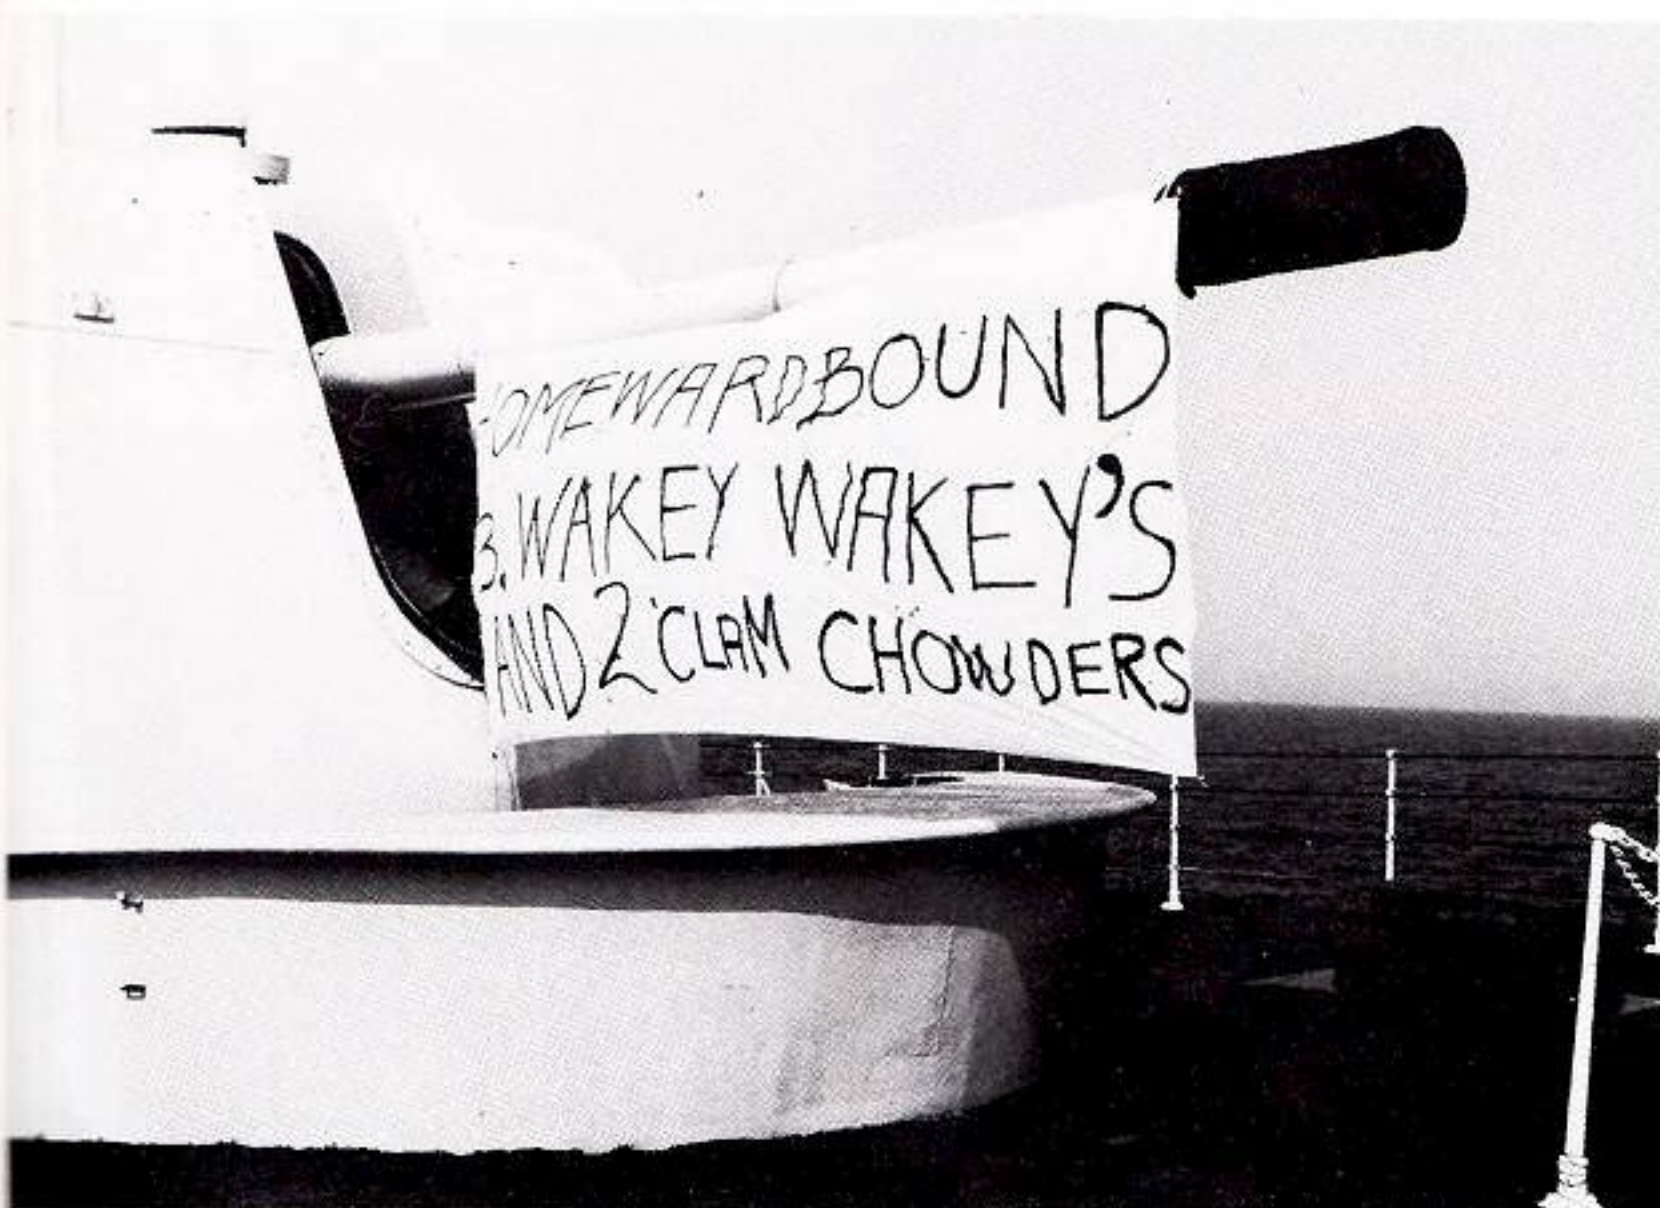 HOMEWARDBOUND
3. WAKEY WAKEY'S
AND 2 CLAM CHOWDERS